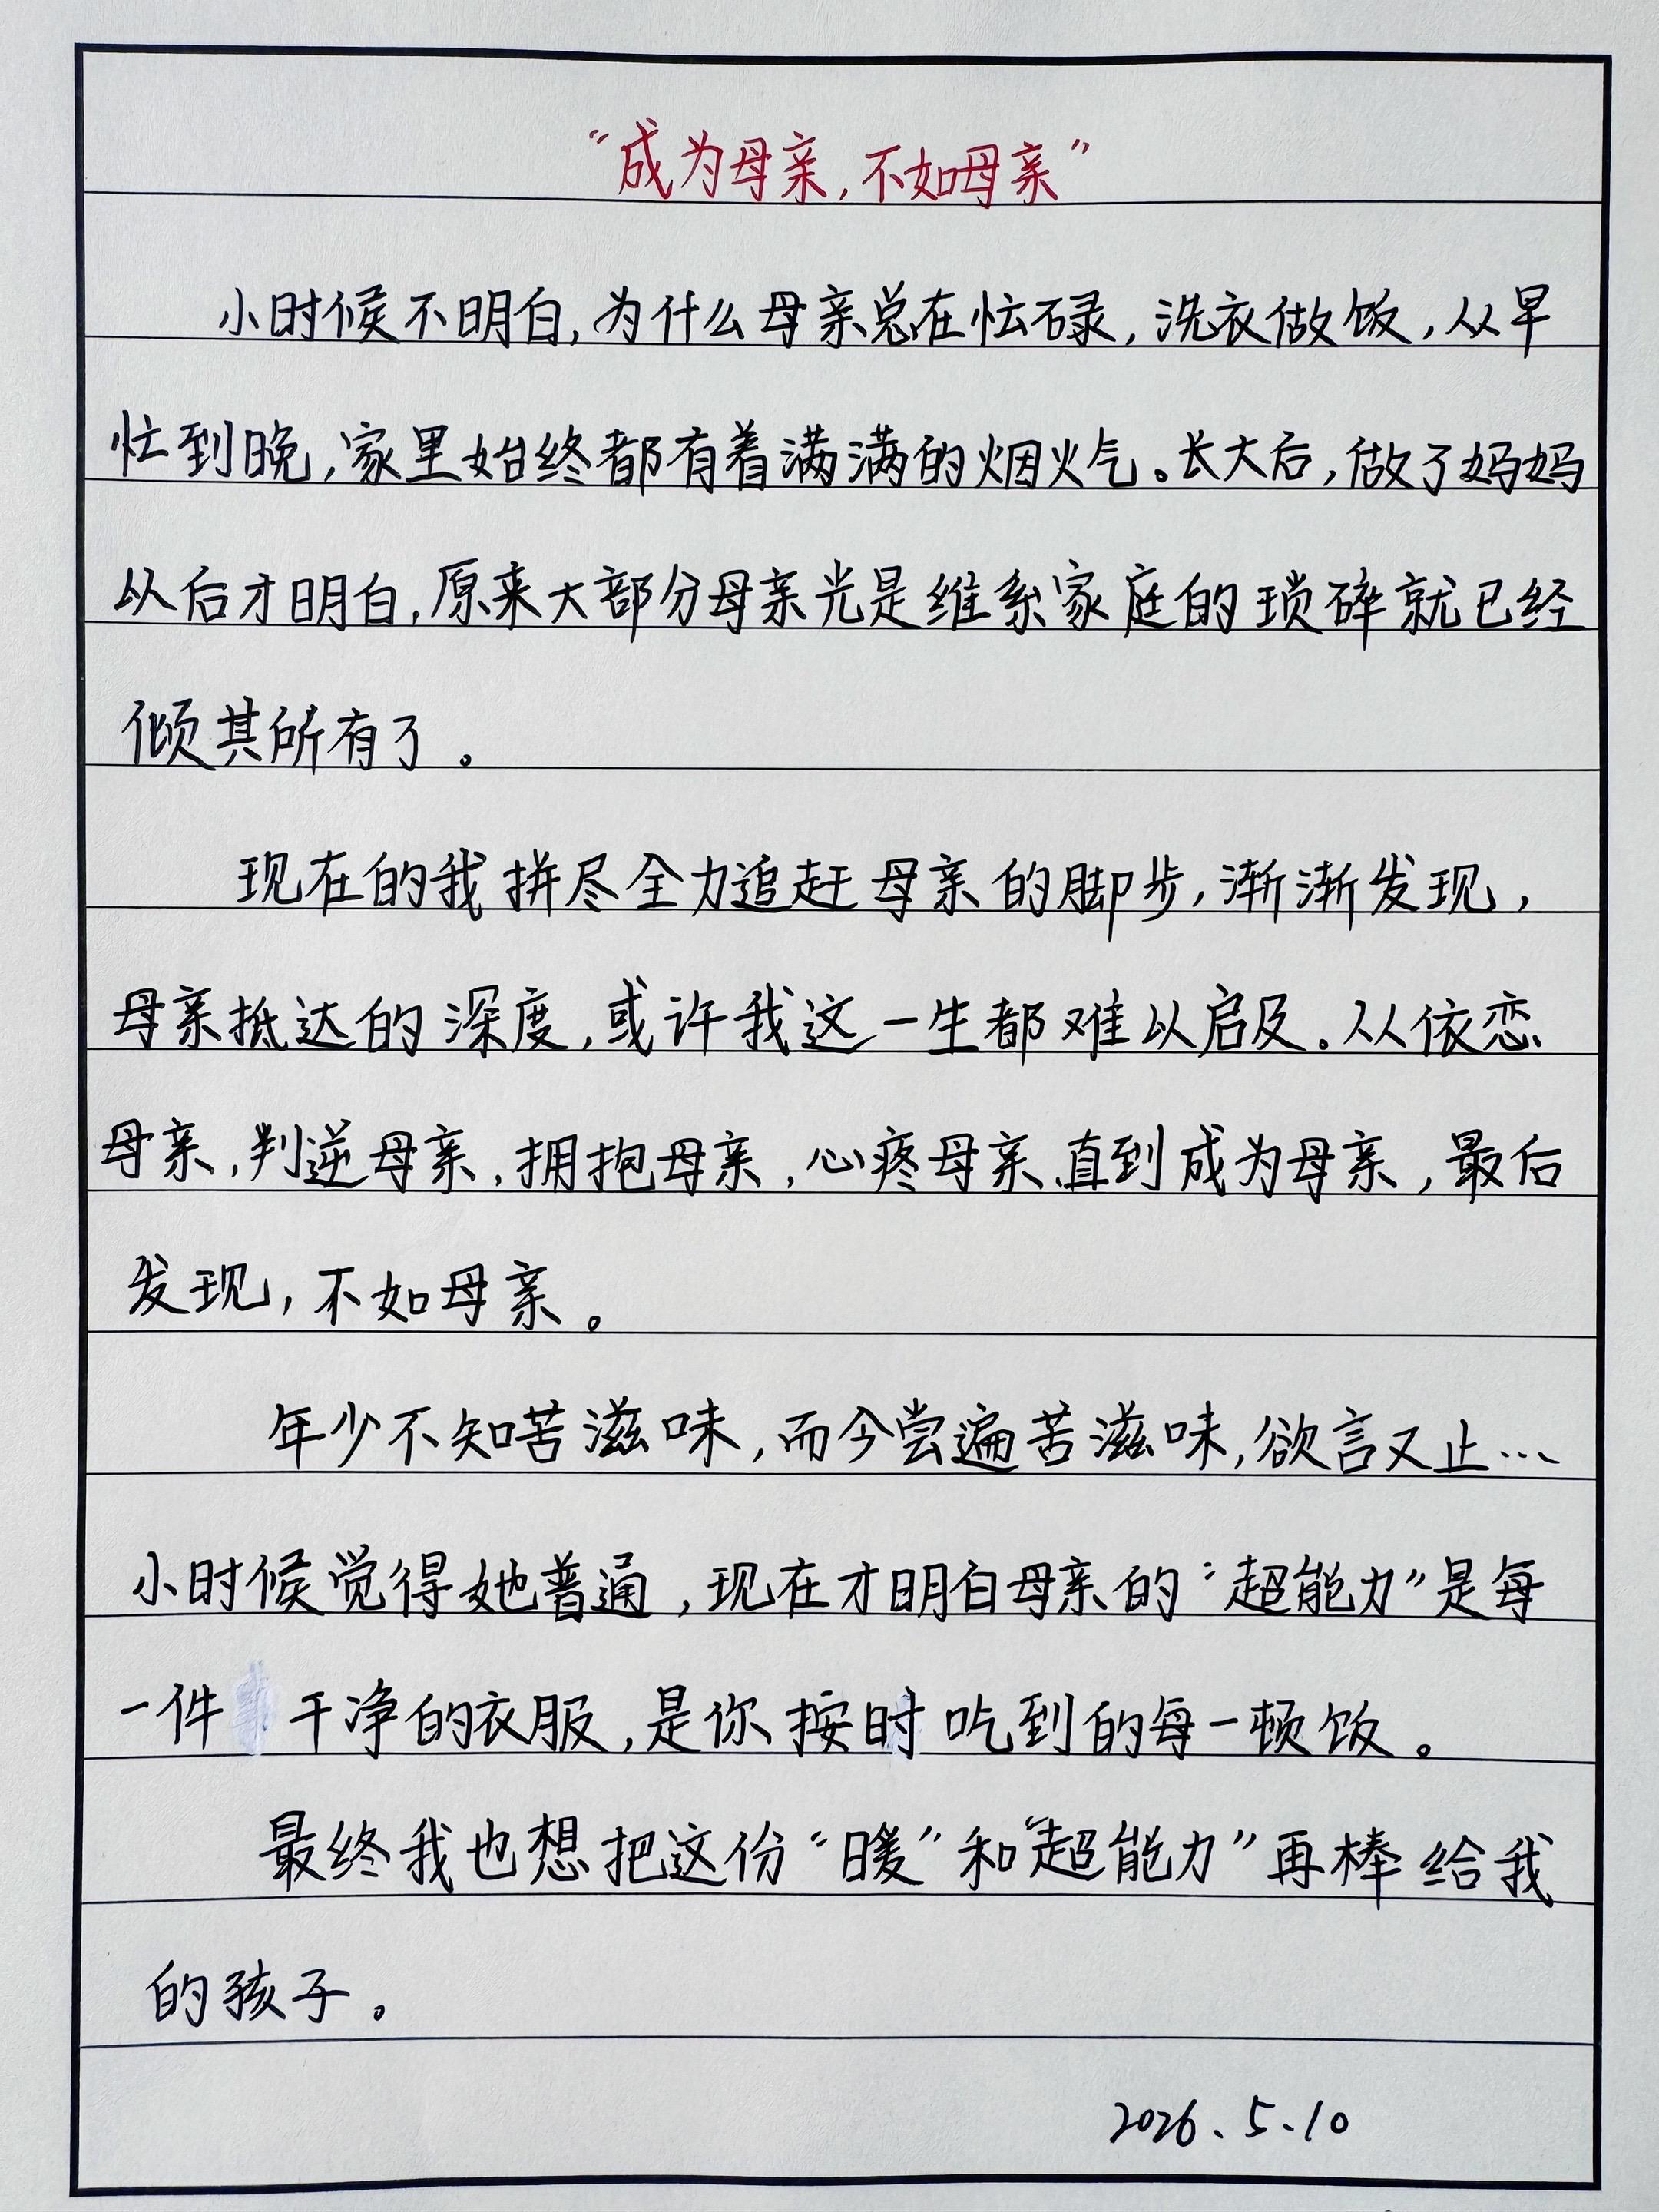 “成为母亲，不如母亲”
小时候不明白，为什么母亲总在忙碌，洗衣做饭，从早
忙到晚，家里始终都有着满满的烟火气。长大后，做了妈妈
以后才明白，原来大部分母亲光是维系家庭的琐碎就已经
倾其所有了。
现在的我拼尽全力追赶母亲的脚步，渐渐发现，
母亲抵达的深度，或许我这一生都难以启及。从依恋
母亲，判逆母亲，拥抱母亲，心疼母亲、直到成为母亲，最后
发现，不如母亲。
年少不知苦滋味，而今尝遍苦滋味，欲言又止…
小时候觉得她普通，现在才明白母亲的“超能力”是每
一件干净的衣服，是你按时吃到的每一顿饭。
最终我也想把这份“暖”和“超能力”再棒给我
的孩子。
2026、5、10